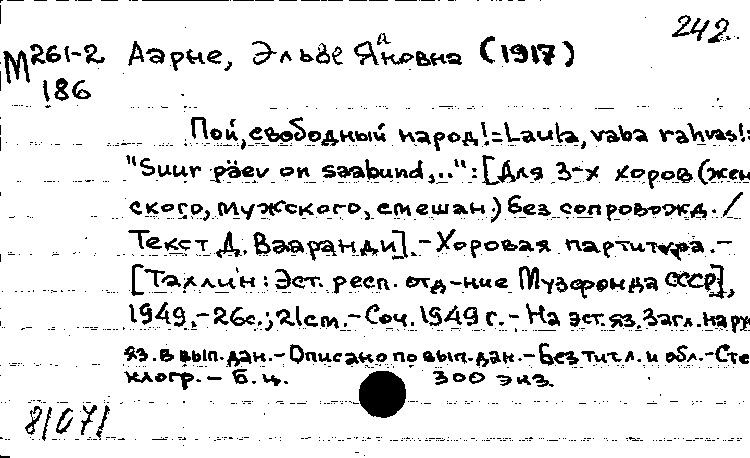 242
М 261-2 Аарне, Эльзе Яновна (1917)
186
Пой, свободный народ! = Laula, vaba rahvas! =
"Suur päev on saabund,..": [Для 3-х хоров (жен
ского, мужского, смешан.) без сопровожд. /
Текст Д. Вааранди]. - Хоровая партитура. -
[Таллин: Эст. респ. отд-ние Музфонда СССР],
1949. - 26с.; 21cm. - Соч. 1949 г. - На эст. яз. Загл. на рус
яз. в вып. дан. - Описано по вып. дан. - Без тит. л. и обл. - Сте
клогр. - Б. ц. 300 экз.
81071